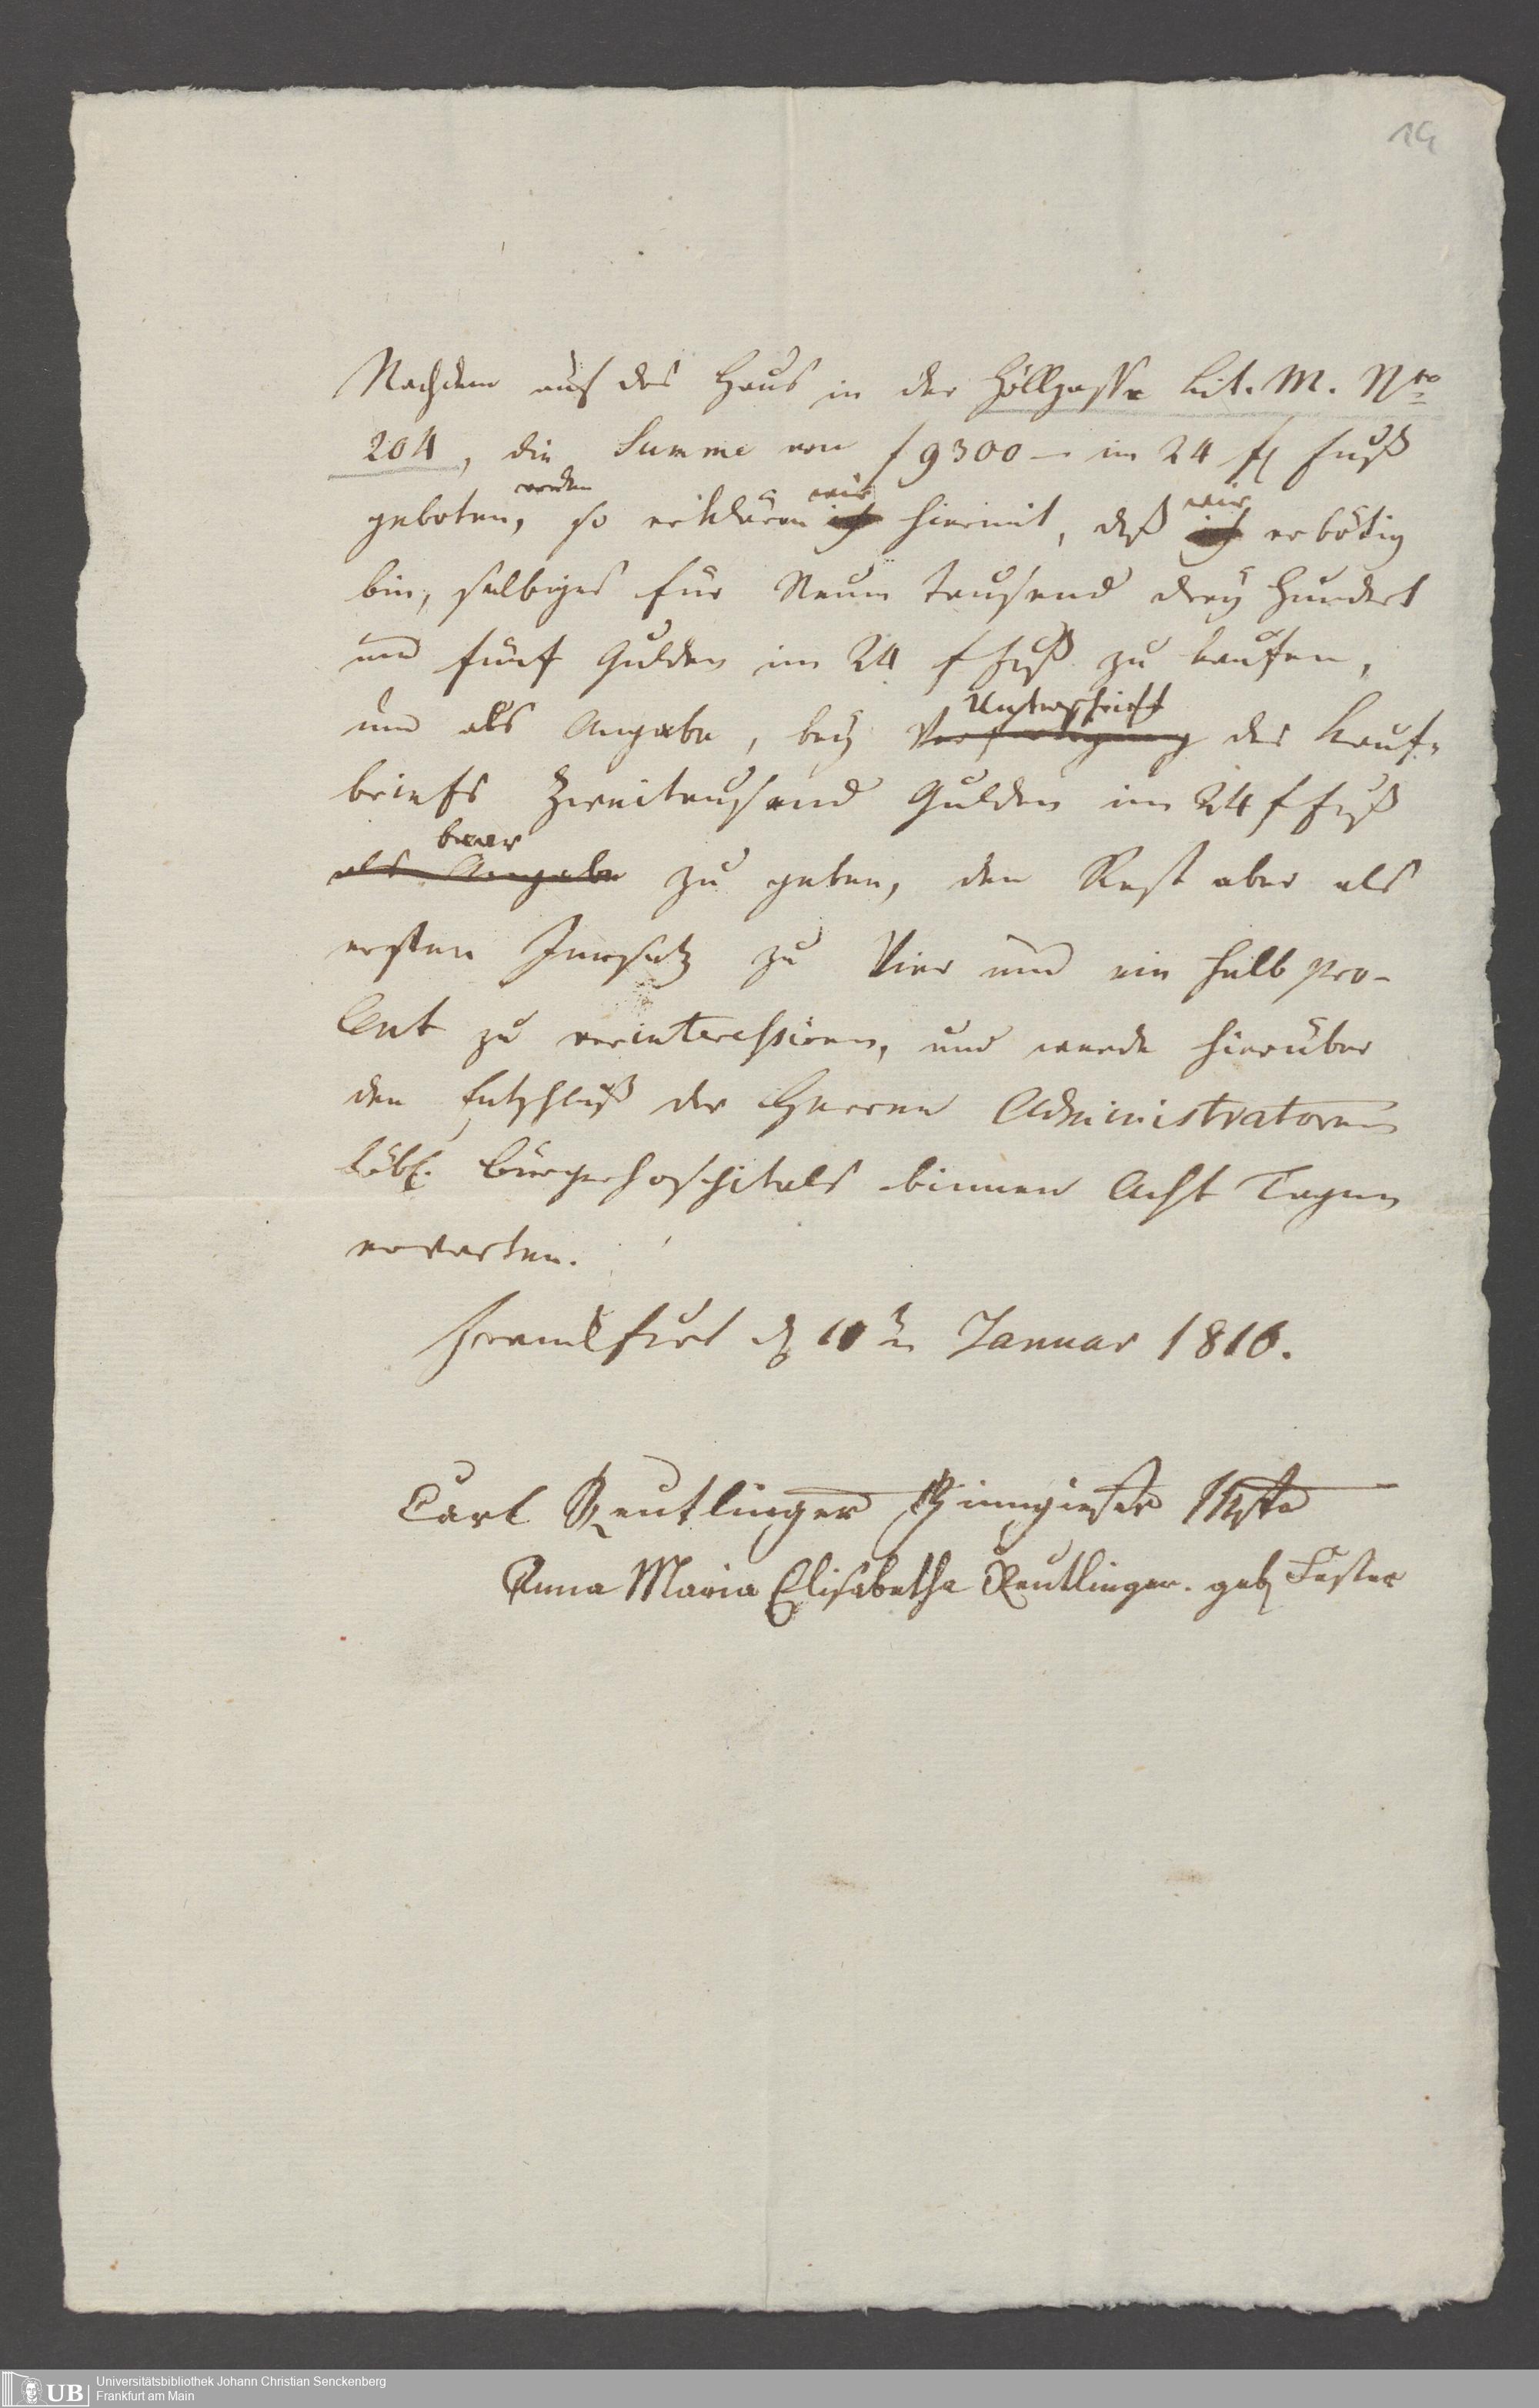 19
Nachdem auf das Haus in der Höllgasse Lit. M. Nro
204, die Summe von f 9300 — im 24 fl Fuß
worden wir wir
geboten, so erklären ich hiermit, daß ich erbötig
bin, selbiges für Neun tausend drey hundert
und fünf Gulden im 24 f Fuß zu kaufen,
Unterschrift
und als Angabe, bey Verfertigung des Kauf-
briefs Zweitausend Gulden im 24 f Fuß
baar
als Angabe zu geben, den Rest aber als
ersten Innsatz zu Vier und ein halb pro-
Cent zu verinteressiren, und werde hierüber
den Entschluß der Herren Administratoren
löbl. Bürgerhospitals binnen Acht Tagen
erwarten.
Frankfurt d 10n Januar 1816.
Carl Reutlinger Zinngieser Mstr
Anna Maria Elisabetha Reutlinger. geb Fester
UB
Universitätsbibliothek Johann Christian Senckenberg
Frankfurt am Main